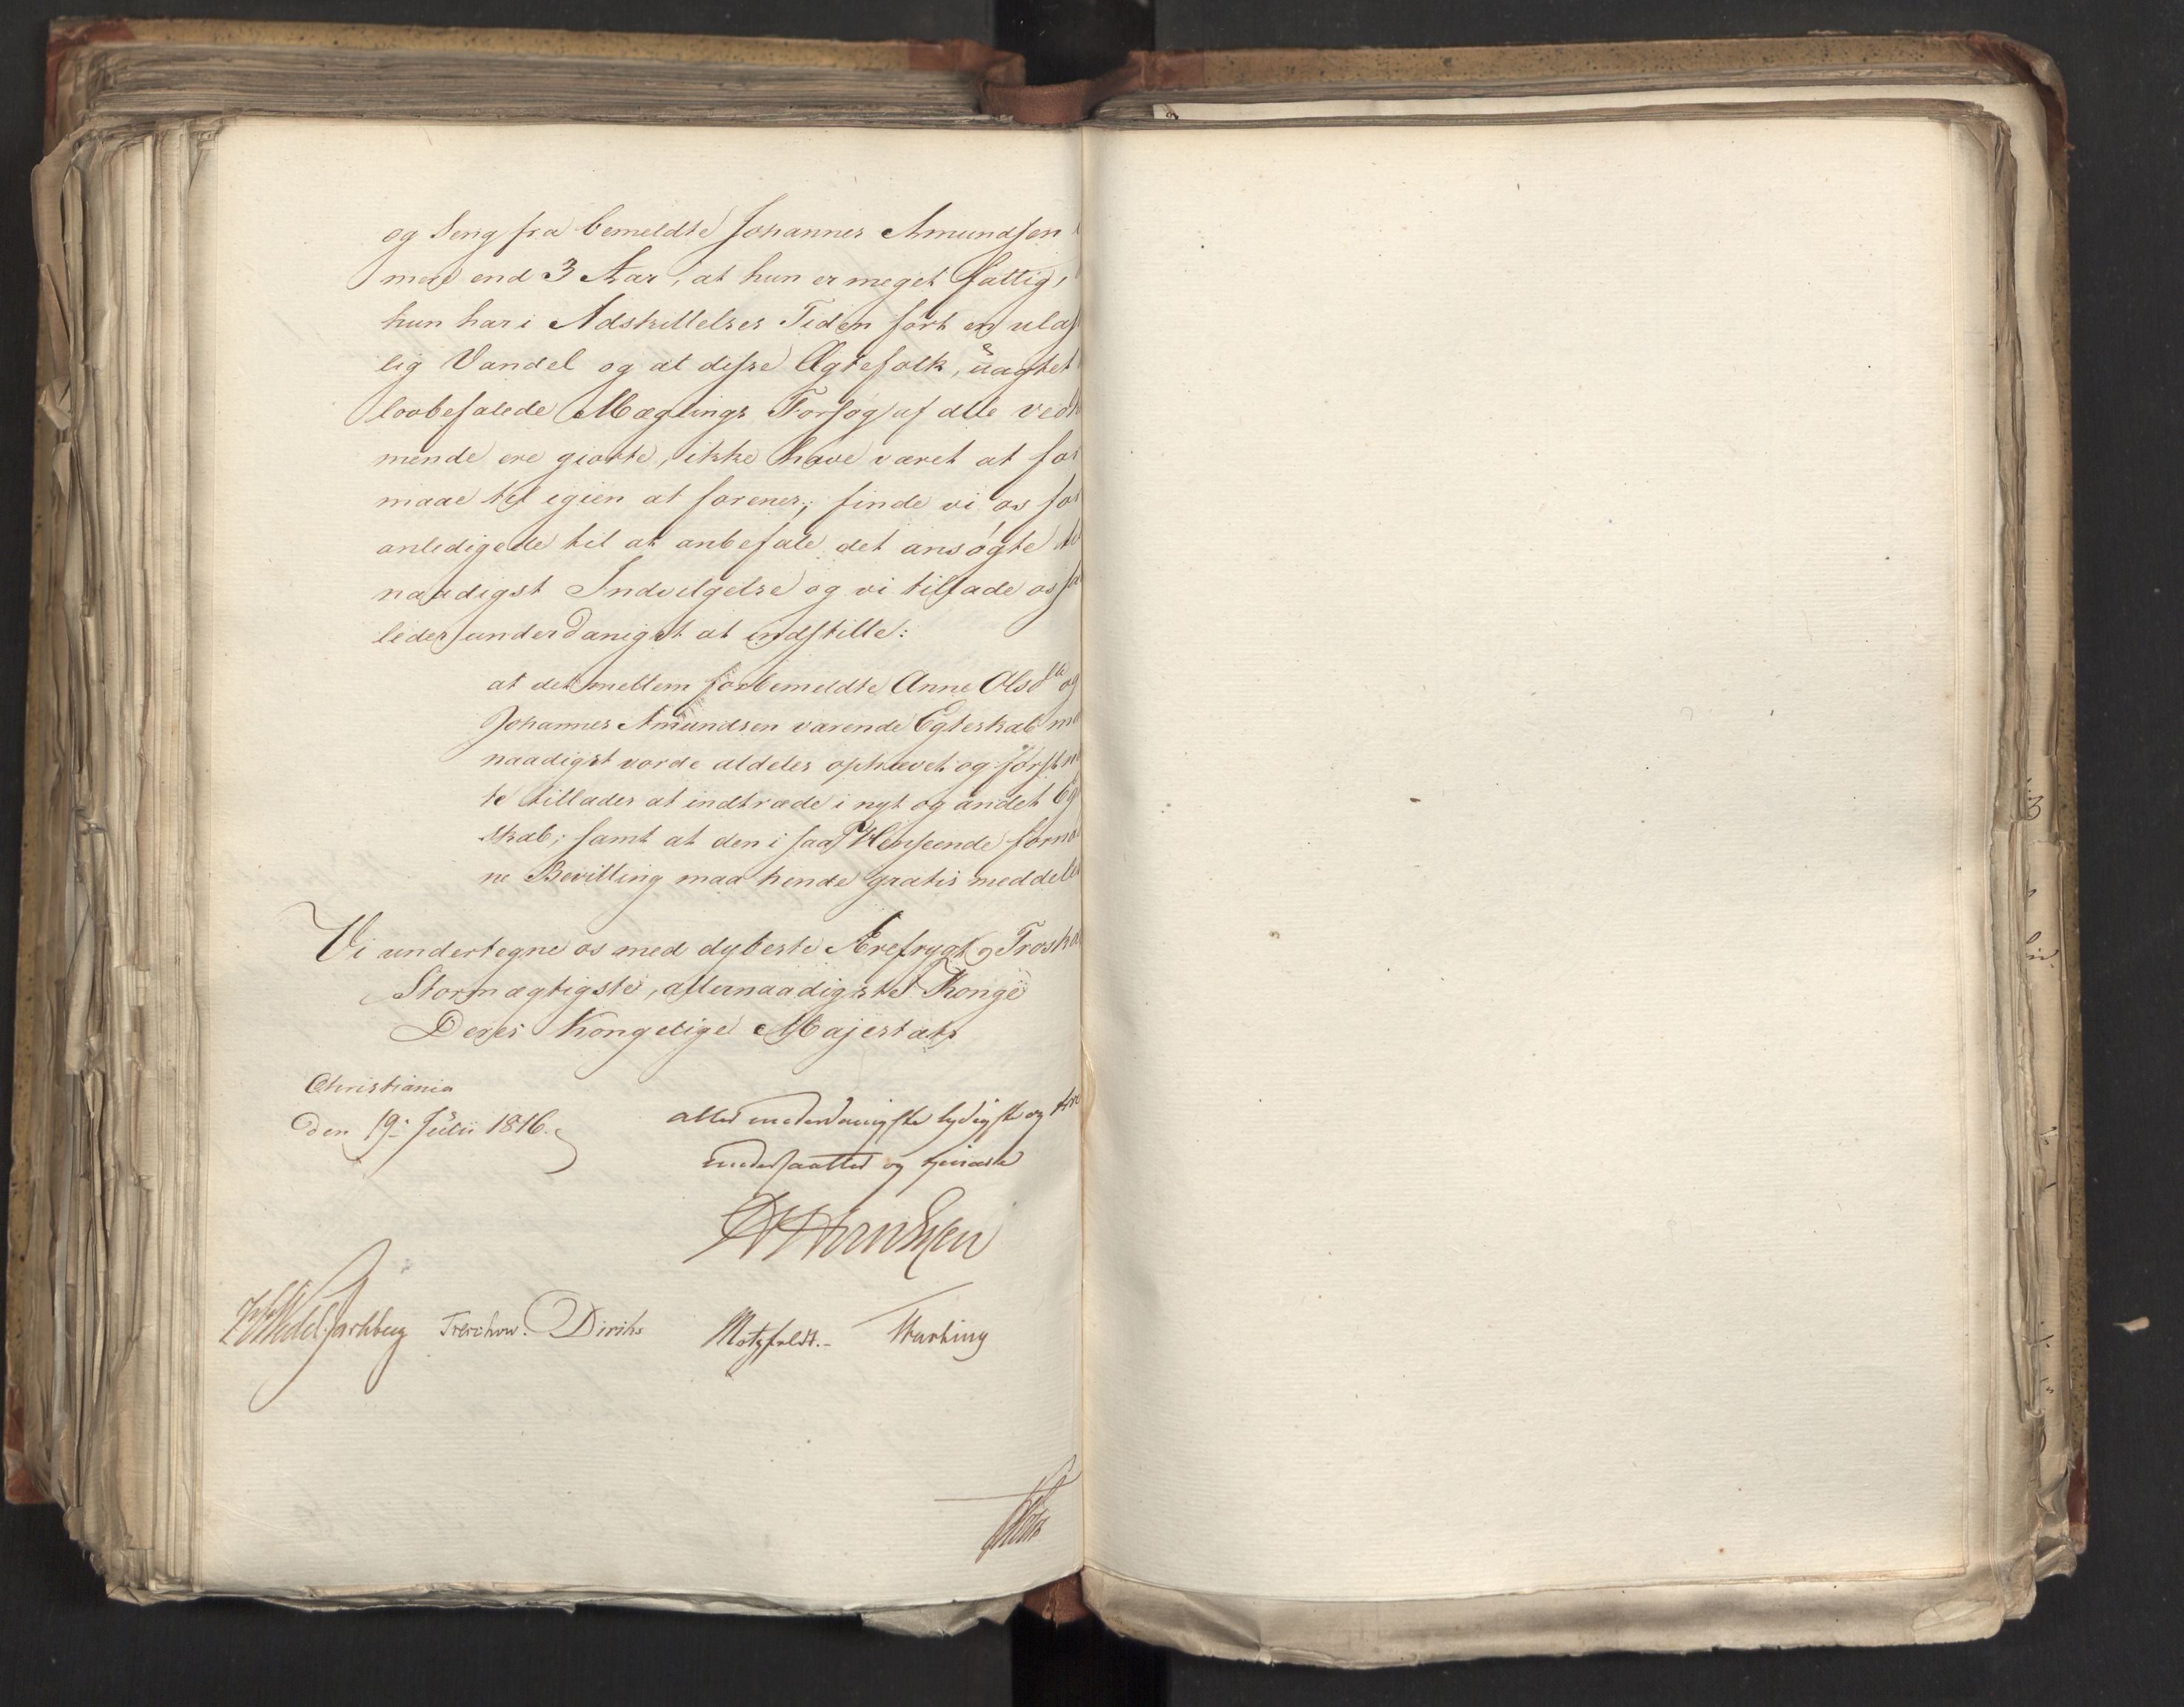 og Seng fra bemeldte Johannes Amundsen
mere end 3 Aar, at hun er meget fattig,
hun har i Adskillelses Tiden ført en ulas
lig Vandel og at disse Ægtefolk, uagtet
lovbefalede Mæglings Forsøg af alle vedk
mende ere giorte, ikke have været at for
maae til igien at forenes; finde vi os for
anledigede til at anbefale det ansøgte til
naadigst Indvilgelse og vi tillade os saa
ledes underdanigst at indstille:
at det mellem forbemeldte Anne Olsd og
Johannes Amundsen værende Egteskab ma
naadigst vorde aldeles ophævet og førstn
te tillades at indtræde i nyt og andet Eg
skab; samt at den i saa Henseende fornø
ne Bevilling maa hende gratis meddeles
Vi undertegne os med dybeste Ærefrygt og Troska
Stormægtigste, allernaadigste Konge
Deres Kongelige Majestæts
Christiania
den 19. Julii 1816.
allerunderdanigste lydigste og tro
undersaatter og tjenere
Wedel Jarlsberg Treschow. Diriks Motzfeldt.-